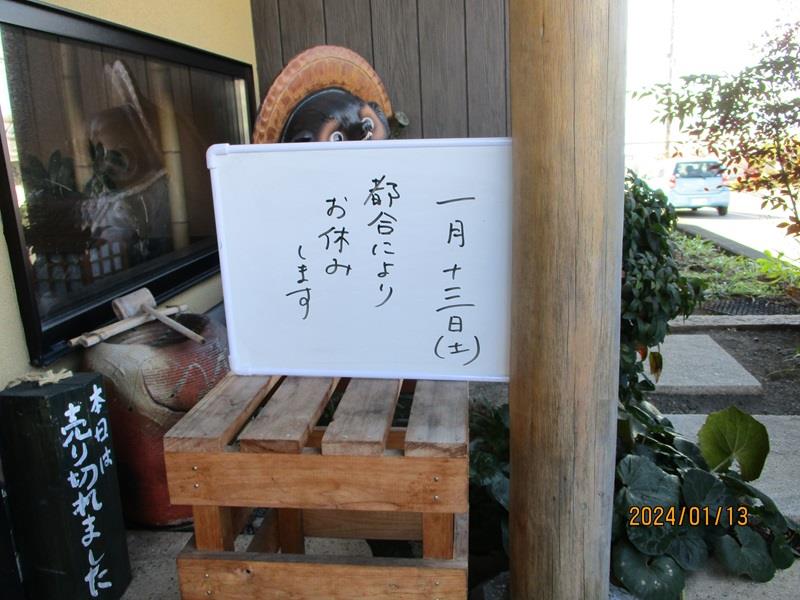 一月十三日(土)
都合により
お休み
します
本日は
売り切れました
2024/01/13